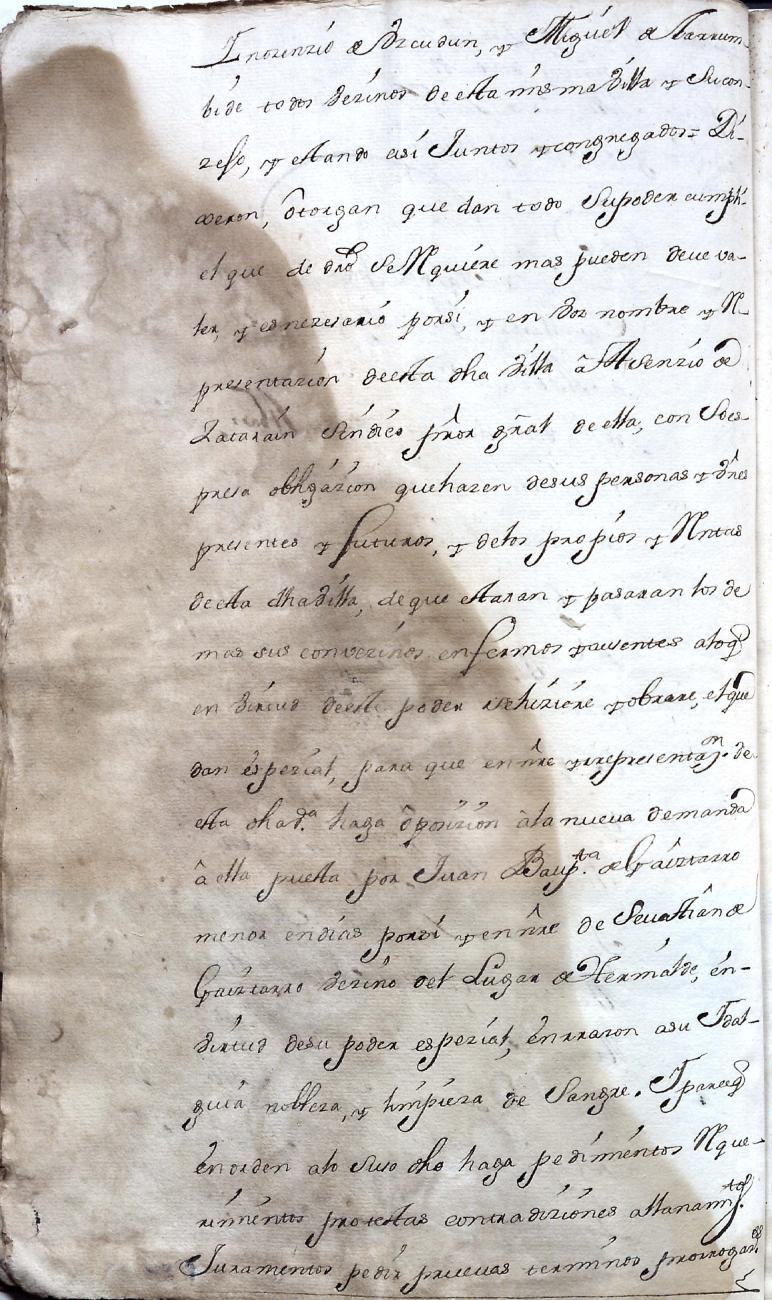 Inorenzio de Azcudun, y Miguel de Larrum-
bide todos vezinos de esta misma villa y su con-
zejo, y estando asi Juntos y congregados = Di-
xeron, otorgan que dan todo su poder cumpli-
el que de dro se Requiere mas pueden deve va-
ler, y es nezesario por si, y en voz nombre y Re-
presentazion de esta dha villa â Asenzio de
Zatarain Sindico pror gral de ella, con Sões-
presa obligazion que hazen de sus personas y vnes
presentes y futuros, y de los propios y Rentas
de esta dha villa, de que estaran y pasaran los de
mas sus convezinos enfermos y ausentes a lo q
en virtud de este poder se hiziere y obrare, el que
dan espezial, para que en nre y representaon. de
esta dha va. haga ôposizion â la nueva demanda
â ella puesta por Juan Bapta. de Gaiztarro
menor en dias por si y en nre de Sevastian de
Gaiztarro vezino del Lugar de Hernialde, en-
virtud de su poder espezial, en rrazon a su Idal-
guia nobleza, y limpieza de Sangre. I para q
en orden a lo suso dho haga pedimentos Reque-
rimientos protestas contradiziones allanamtos.
Juramentos pedir pruevas terminos prorrogaes